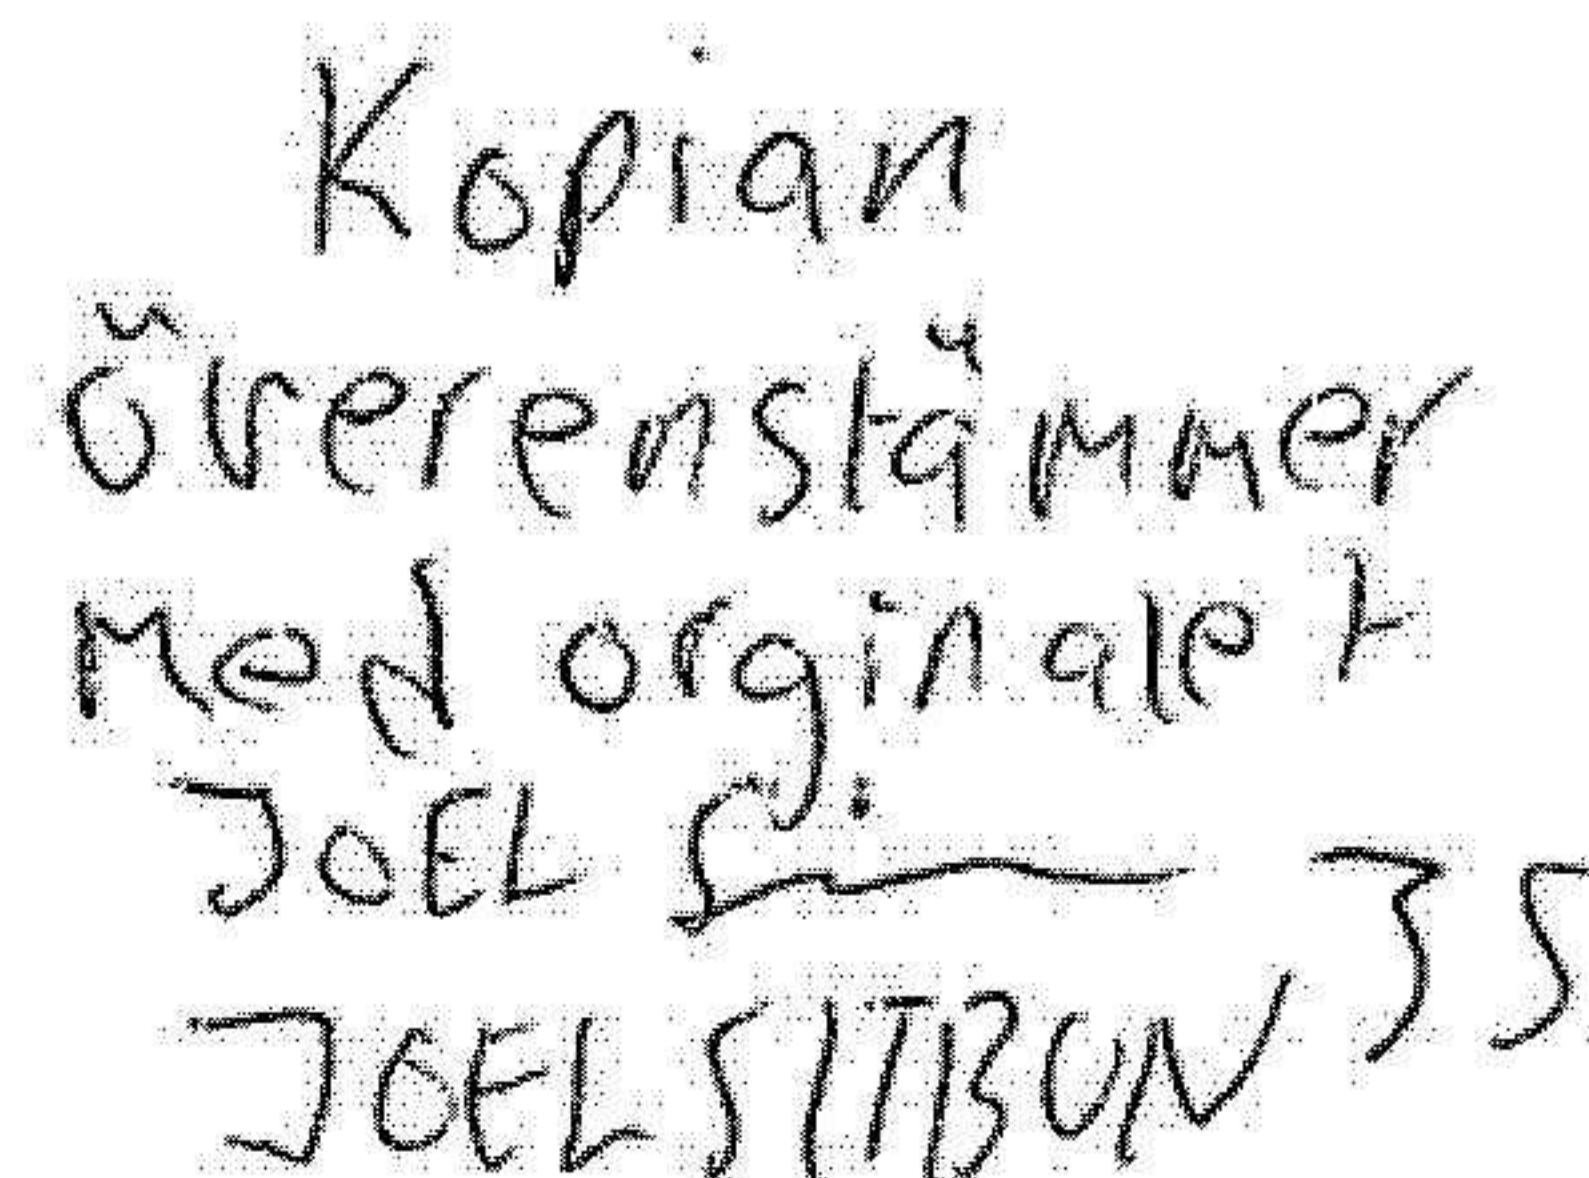 Kopian
överenstämmer
Med orginalet
JOEL S
JOEL SITBON 35